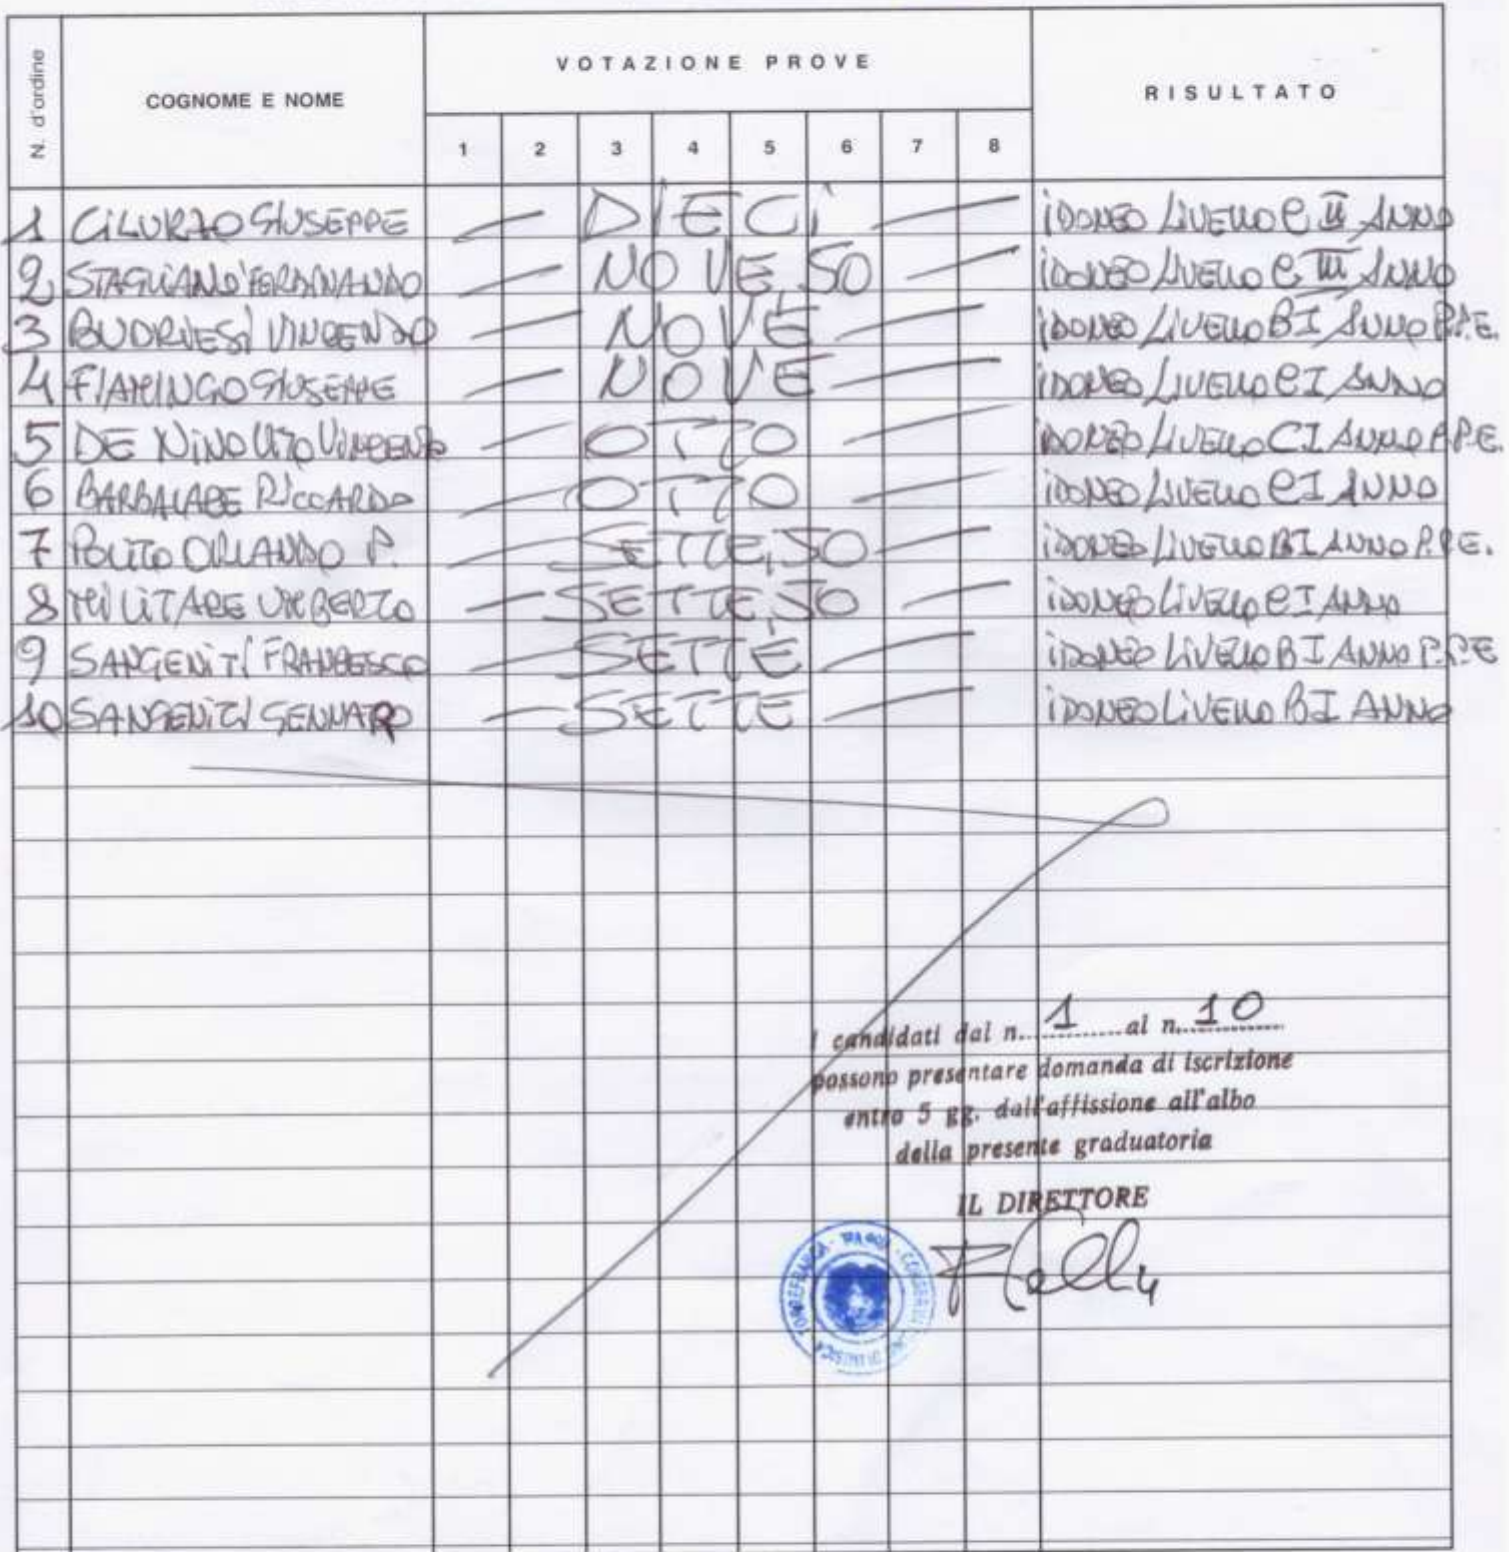 N. d'ordine COGNOME E NOME VOTAZIONE PROVE RISULTATO
1 2 3 4 5 6 7 8
1 CILURZO GIUSEPPE — DIECI — IDONEO LIVELLO C II ANNO
2 STAGLIANO' FERDINANDO — NOVE,50 — IDONEO LIVELLO C III ANNO
3 VINCENZO — NOVE — IDONEO LIVELLO B I ANNO P.P.E.
4 FIAMINGO GIUSEPPE — NOVE — IDONEO LIVELLO C I ANNO
5 DE NINO VITO VINCENZO — OTTO — IDONEO LIVELLO C I ANNO P.P.E.
6 BARBALACE RICCARDO — OTTO — IDONEO LIVELLO C I ANNO
7 POLITO ORLANDO P. — SETTE,50 — IDONEO LIVELLO B I ANNO P.P.E.
8 MILITARE UMBERTO — SETTE,50 — IDONEO LIVELLO C I ANNO
9 SANGENITI FRANCESCO — SETTE — IDONEO LIVELLO B I ANNO P.P.E
10 SANGENITI GENNARO — SETTE — IDONEO LIVELLO B I ANNO
I candidati dal n. 1 al n. 10
possono presentare domanda di iscrizione
entro 5 gg. dall'affissione all'albo
della presente graduatoria
IL DIRETTORE